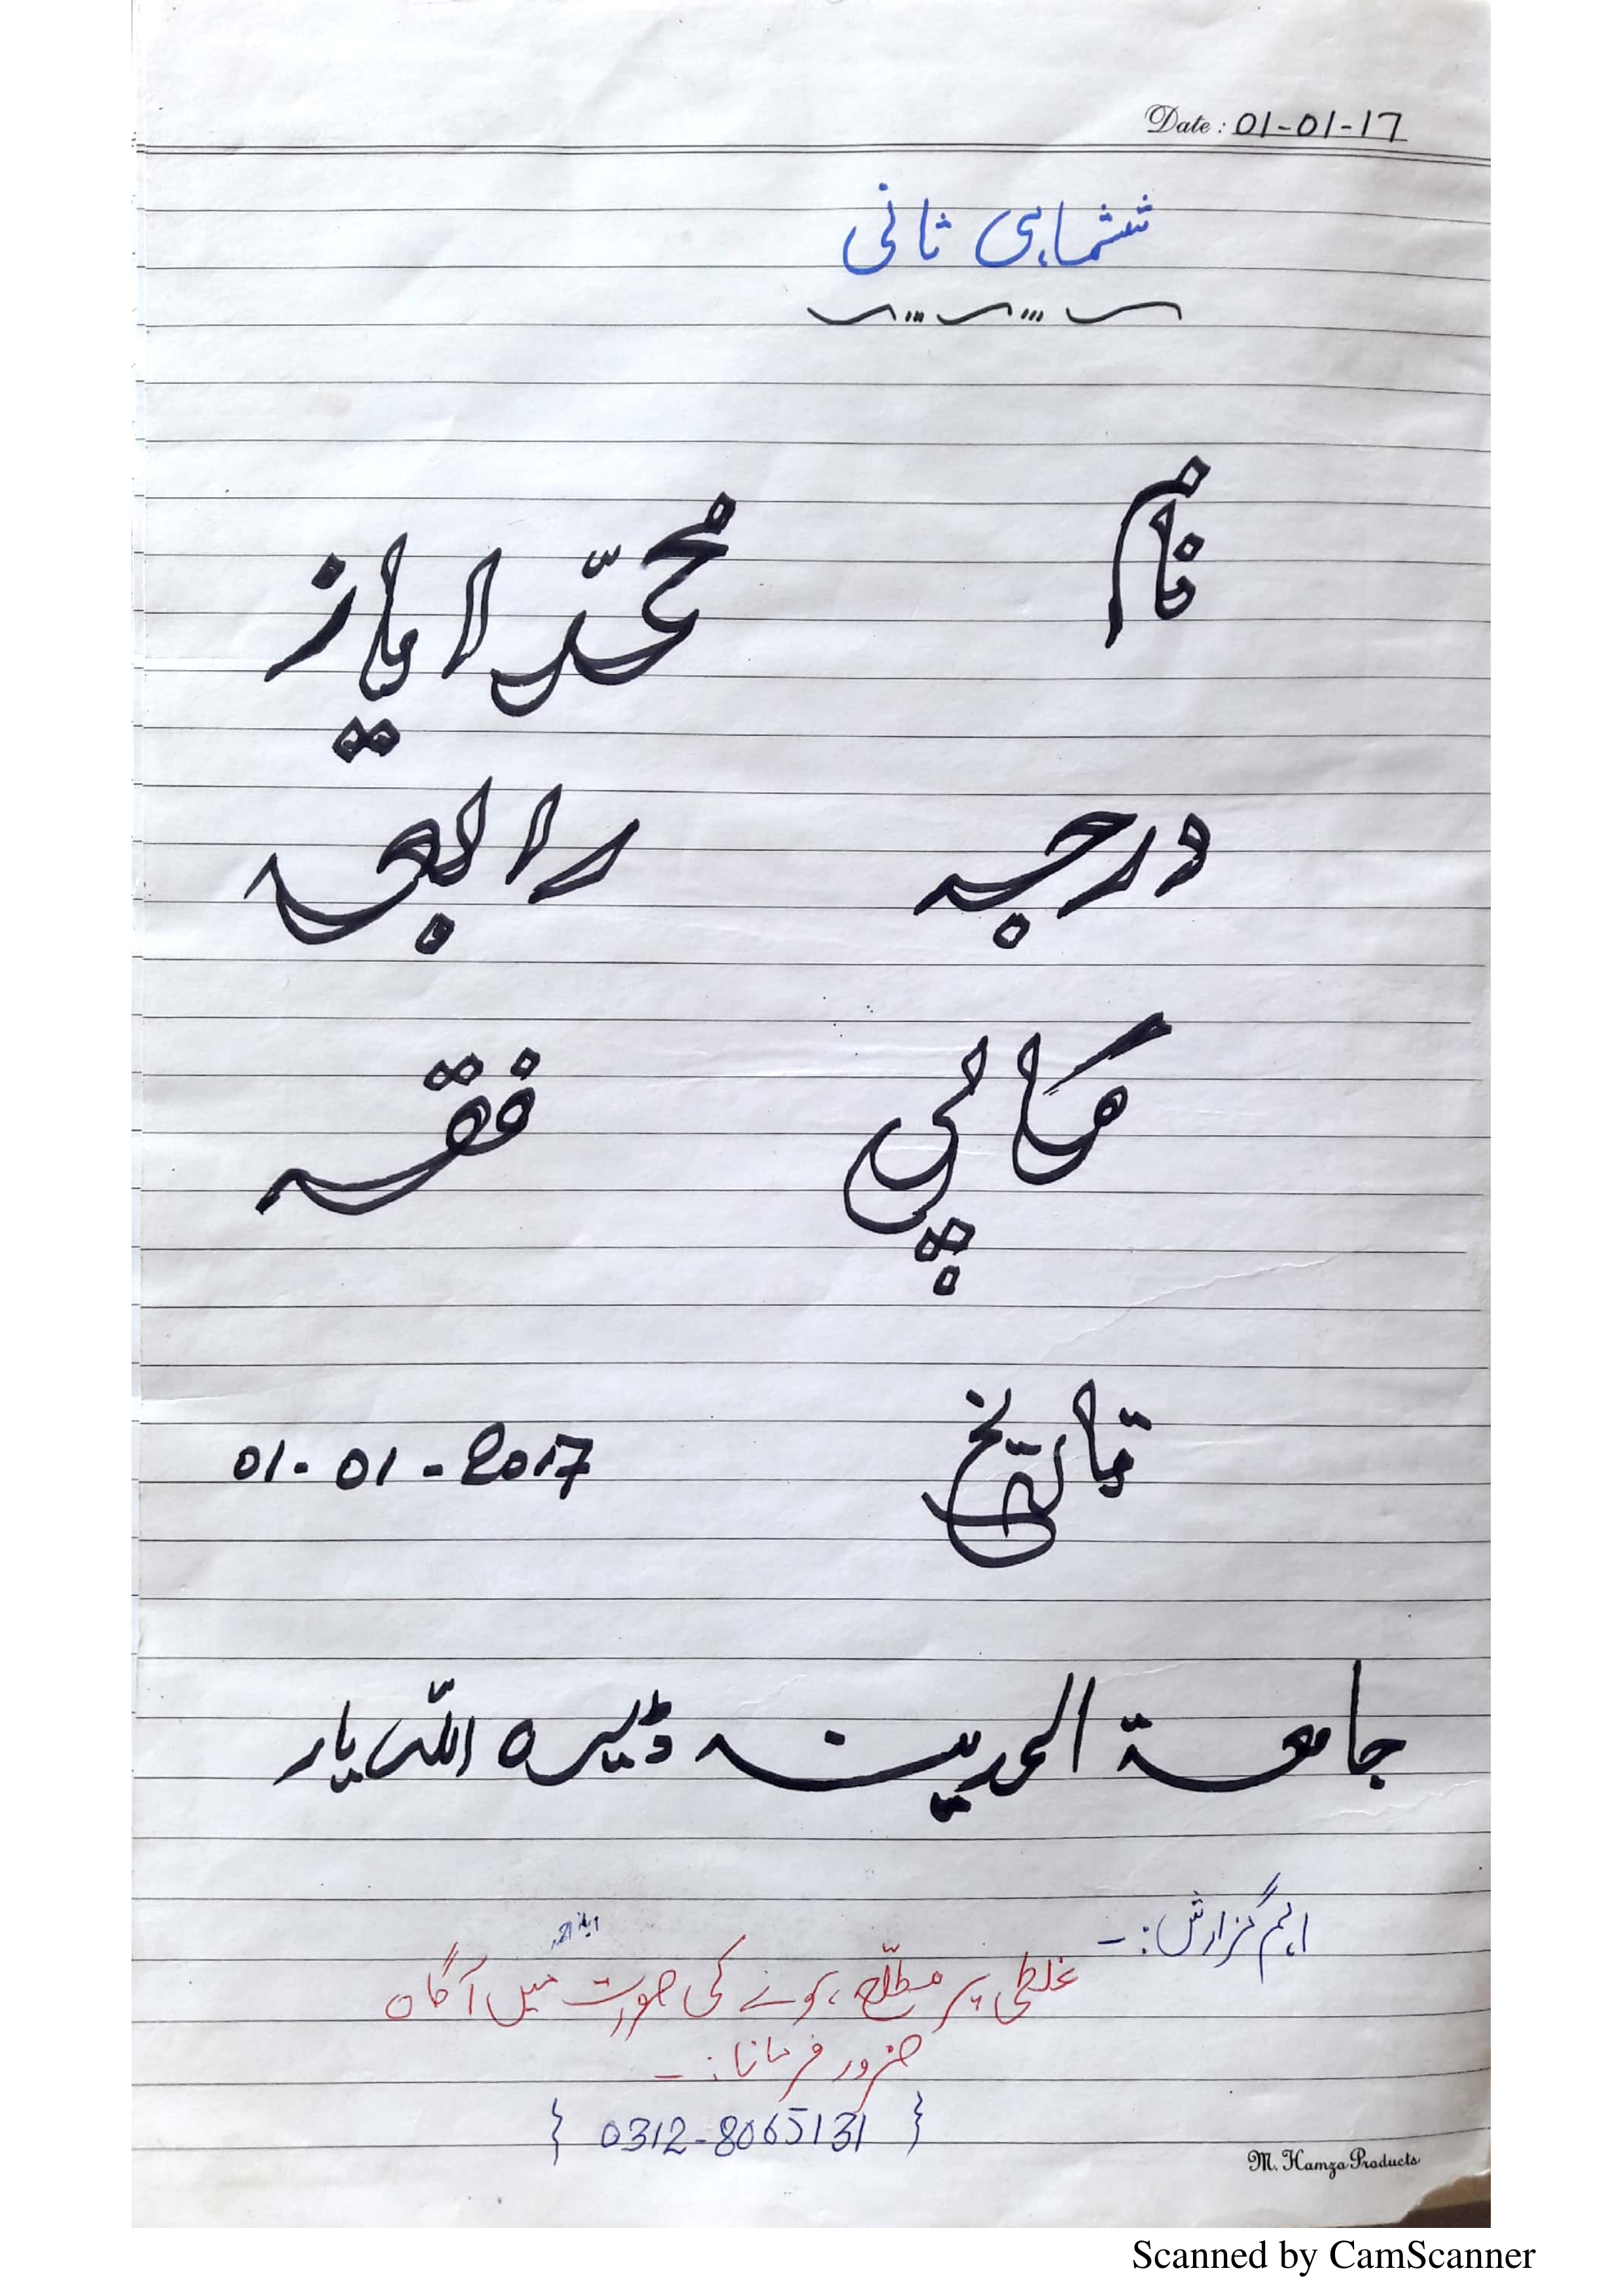 Date : 01-01-17
ششماہی ثانی
نام محمّد ایاز
درجہ رابعہ
کاپی فقہ
تاریخ 01-01-2017
جامعۃ المدینہ ڈیرہ اللہ یار
اہم گزارش:-
غلطی پر مطلع ہونے کی صورت میں آگاہ
ضرور فرمانا:-
{ 0312-8065131 }
M. Hamza Products
Scanned by CamScanner